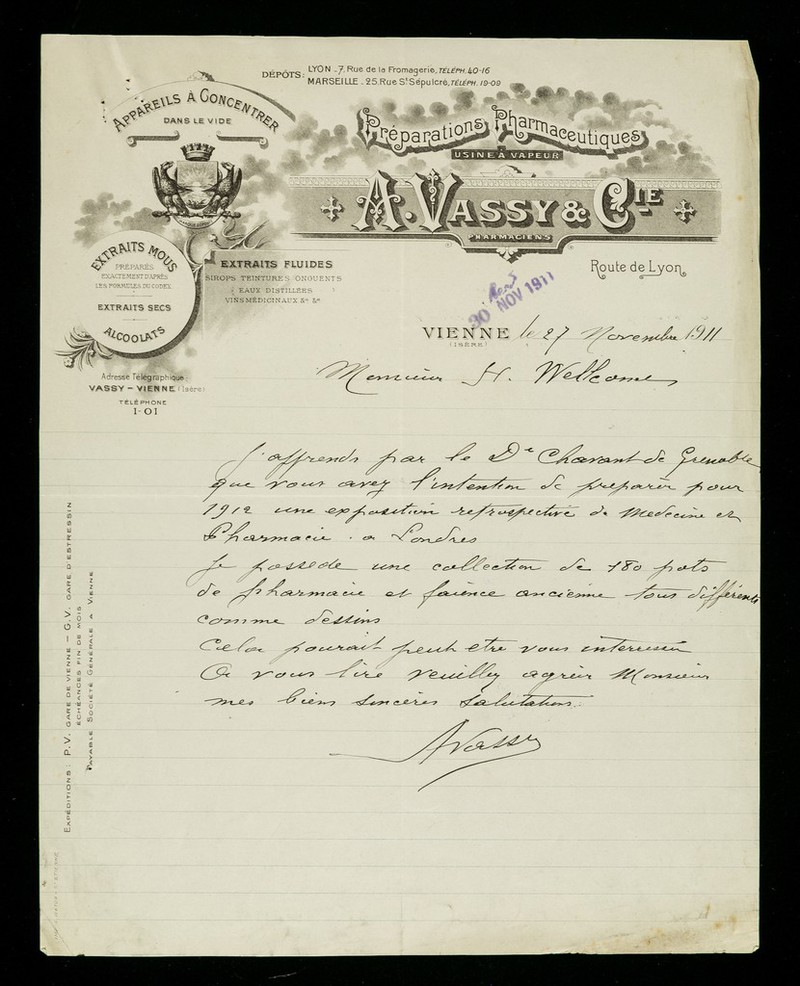 DÉPÔTS: LYON - 7, Rue de la Fromagerie, TÉLÉPH. 40-16
MARSEILLE - 25, Rue St Sépulcre, TÉLÉPH. 19-09
APPAREILS À CONCENTRER
DANS LE VIDE
Préparations Pharmaceutiques
USINE À VAPEUR
A. VASSY & CIE
PHARMACIENS
Route de Lyon
EXTRAITS MOUS
PRÉPARÉS
EXACTEMENT D'APRÈS
LES FORMULES DU CODEX
EXTRAITS SECS
ALCOOLATS
EXTRAITS FLUIDES
SIROPS TEINTURES ONGUENTS
EAUX DISTILLÉES
VINS MÉDICINAUX &c &c
30 NOV 1911
VIENNE le 27 Novembre 1911
(ISÈRE)
Adresse Télégraphique:
VASSY - VIENNE (Isère)
TÉLÉPHONE
1-01
Monsieur H. Wellcome
J'apprends par le Dr Chavant de Grenoble
que vous avez l'intention de preparer pour
1912 une exposition retrospective de Medecine et
Pharmacie a Londres
Je possede une collection de 180 pots
de pharmacie et faience ancienne tous différents
comme dessins
Cela pourait peut etre vous interresser
A vous lire veuillez agréer Monsieur
mes biens sincères salutations.
AVassy
EXPÉDITIONS: P.V. GARE DE VIENNE - G.V. GARE D'ESTRESSIN
ÉCHÉANCES FIN DE MOIS
PAYABLE SOCIÉTÉ GÉNÉRALE A VIENNE